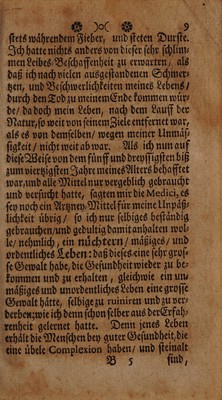 9
stets währendem Fieber, und steten Durste.
Ich hatte nichts anders von dieser sehr schlim-
men Leibes-Beschaffenheit zu erwarten, als
daß ich nach vielen ausgestandenen Schmer-
tzen, und Beschwerlichkeiten meines Lebens/
durch den Tod zu meinem Ende kommen wür-
de/ da doch mein Leben, nach dem Lauff der
Natur, so weit von seinem Ziele entfernet war,
als es von demselben/ wegen meiner Unmäs-
sigkeit/ nicht weit ab war. Als ich nun auf
diese Weise von dem fünff und dreyssigsten biß
zum viertzigsten Jahre meines Alters behafftet
war, und alle Mittel nur vergeblich gebraucht
und versucht hatte, sagten mir die Medici, es
sey noch ein Artzney-Mittel für meine Unpäß-
lichkeit übrig/ so ich nur selbiges beständig
gebrauchen/ und gedultig damit anhalten wol-
le/ nehmlich, ein nüchtern/ mäßiges/ und
ordentliches Leben: daß dieses eine sehr gros-
se Gewalt habe, die Gesundheit wieder zu be-
kommen und zu erhalten, gleichwie ein un-
mäßiges und unordentliches Leben eine grosse
Gewalt hätte, selbige zu ruiniren und zu ver-
derben; wie ich denn schon selber aus der Erfah-
renheit gelernet hatte. Denn jenes Leben
erhält die Menschen bey guter Gesundheit, die
eine übele Complexion haben/ und steinalt
B 5 sind,